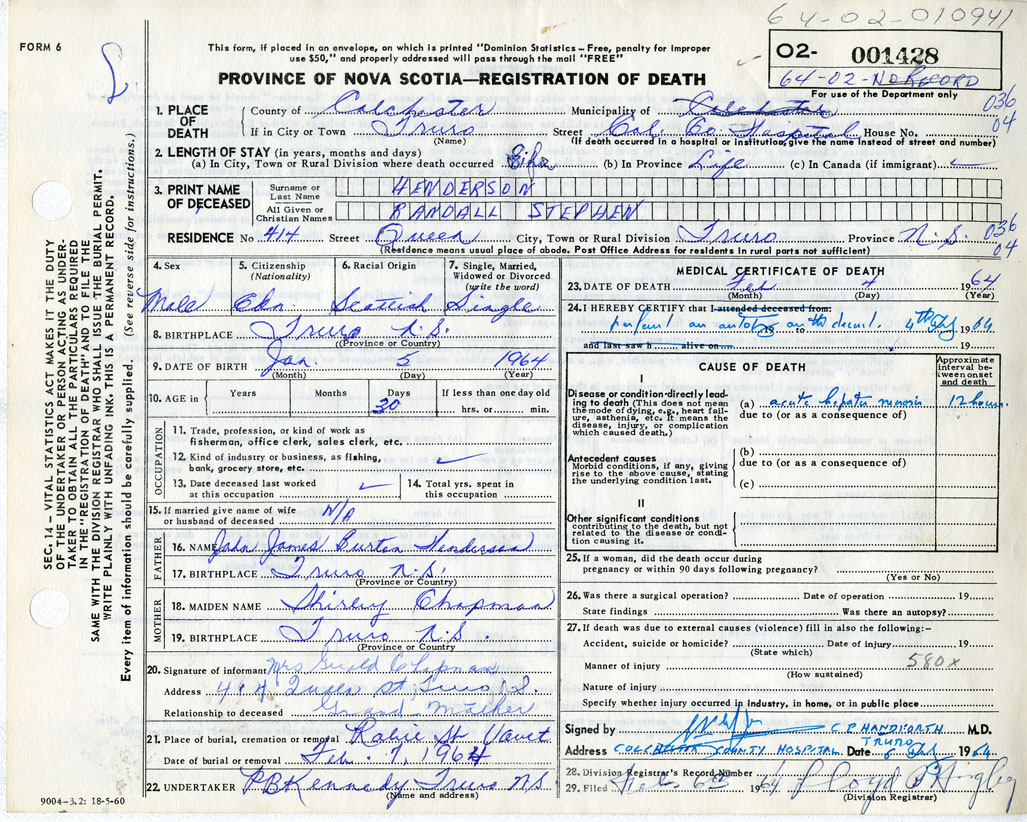 64-02-010941
FORM 6
This form, if placed in an envelope, on which is printed "Dominion Statistics—Free, penalty for improper
use $50," and properly addressed will pass through the mail "FREE"
02- 001428
64-02-NO RECORD
For use of the Department only
PROVINCE OF NOVA SCOTIA—REGISTRATION OF DEATH
036
04
SEC. 14 – VITAL STATISTICS ACT MAKES IT THE DUTY
OF THE UNDERTAKER OR PERSON ACTING AS UNDER-
TAKER TO OBTAIN ALL THE PARTICULARS REQUIRED
IN THE "REGISTRATION OF DEATH" AND TO FILE THE
SAME WITH THE DIVISION REGISTRAR WHO SHALL ISSUE THE BURIAL PERMIT.
WRITE PLAINLY WITH UNFADING INK. THIS IS A PERMANENT RECORD.
Every item of information should be carefully supplied. (See reverse side for instructions.)
1. PLACE OF DEATH
County of Colchester Municipality of Colchester
If in City or Town Truro Street Col. Co. Hospital House No.
(Name) (If death occurred in a hospital or institution, give the name instead of street and number)
2. LENGTH OF STAY (in years, months and days)
(a) In City, Town or Rural Division where death occurred (b) In Province Life (c) In Canada (if immigrant)
3. PRINT NAME OF DECEASED
Surname or Last Name HENDERSON
All Given or Christian Names RANDALL STEPHEN
RESIDENCE No. 414 Street Queen City, Town or Rural Division Truro Province N.S. 036
04
(Residence means usual place of abode. Post Office Address for residents in rural parts not sufficient)
4. Sex 5. Citizenship (Nationality) 6. Racial Origin 7. Single, Married, Widowed or Divorced (write the word)
Male Cdn Scottish Single
8. BIRTHPLACE Truro N.S.
(Province or Country)
9. DATE OF BIRTH Jan. 5 1964
(Month) (Day) (Year)
10. AGE in Years Months Days If less than one day old
30 hrs. or min.
OCCUPATION
11. Trade, profession, or kind of work as
fisherman, office clerk, sales clerk, etc.
12. Kind of industry or business, as fishing,
bank, grocery store, etc.
13. Date deceased last worked
at this occupation
14. Total yrs. spent in
this occupation
15. If married give name of wife
or husband of deceased N/A
FATHER
16. NAME John James Burton Henderson
17. BIRTHPLACE Truro N.S.
(Province or Country)
MOTHER
18. MAIDEN NAME Shirley Chapman
19. BIRTHPLACE Truro N.S.
(Province or Country)
20. Signature of informant Mrs Gerald Chapman
Address 414 Queen St Truro N.S.
Relationship to deceased Grand Mother
21. Place of burial, cremation or removal Robie St. Vault
Date of burial or removal Feb. 7, 1964
22. UNDERTAKER P B Kennedy Truro N.S.
(Name and address)
9004-3.2: 18-5-60
MEDICAL CERTIFICATE OF DEATH
23. DATE OF DEATH Feb 4 1964
(Month) (Day) (Year)
24. I HEREBY CERTIFY that I attended deceased from:
perform an autopsy on the 4th 1964
19
and last saw h alive on 19
CAUSE OF DEATH
Approximate interval between onset and death
I
Disease or condition directly leading to death (This does not mean the mode of dying, e.g., heart failure, asthenia, etc. It means the disease, injury, or complication which caused death.)
(a) acute hepatic necrosis 12 hours
due to (or as a consequence of)
Antecedent causes
Morbid conditions, if any, giving rise to the above cause, stating the underlying condition last.
(b)
due to (or as a consequence of)
(c)
II
Other significant conditions
contributing to the death, but not related to the disease or condition causing it.
25. If a woman, did the death occur during
pregnancy or within 90 days following pregnancy?
(Yes or No)
26. Was there a surgical operation? Date of operation 19
State findings Was there an autopsy?
27. If death was due to external causes (violence) fill in also the following:–
Accident, suicide or homicide? Date of injury 19
(State which)
Manner of injury 580X
(How sustained)
Nature of injury
Specify whether injury occurred in industry, in home, or in public place
Signed by C. P. HANDFORTH M.D.
TRURO
Address COLCHESTER COUNTY HOSPITAL Date 6 1964
28. Division Registrar's Record Number
29. Filed Feb 6th 1964 Lloyd
(Division Registrar)